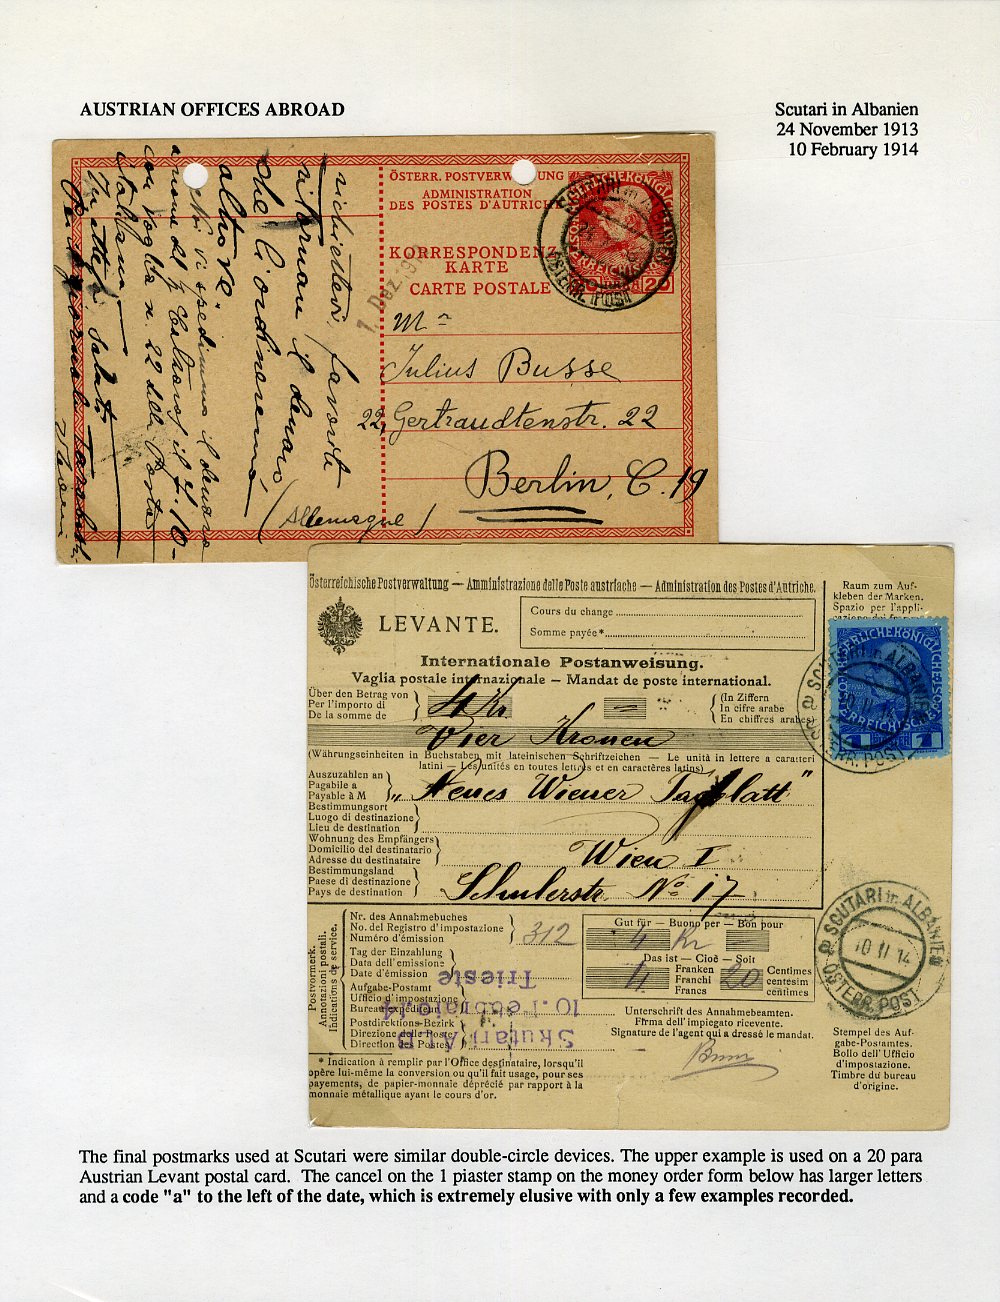 AUSTRIAN OFFICES ABROAD
Scutari in Albanien
24 November 1913
10 February 1914
ÖSTERR. POSTVERWALTUNG
ADMINISTRATION
DES POSTES D'AUTRICHE
KORRESPONDENZ-
KARTE
CARTE POSTALE
7. Dez. 191
ÖSTERR. POST
20
Julius Busse
22, Gertraudtenstr. 22
Berlin, C. 19
(Allemagne)
richiedervi, favorite
ritornarci il denaro,
che li ordineremo
altrove
Noi vi spedimmo il denaro
con vaglia n. 22 della Posta
italiana
Inattesa, saluti
Österreichische Postverwaltung — Amministrazione delle Poste austriache — Administration des Postes d'Autriche.
LEVANTE.
Cours du change
Somme payée*
Raum zum Auf-
kleben der Marken.
Spazio per l'appli-
cazione dei
Internationale Postanweisung.
Vaglia postale internazionale — Mandat de poste international.
Über den Betrag von
Per l'importo di
De la somme de
4 Kr.
(In Ziffern
In cifre arabe
En chiffres arabes)
Vier Kronen
(Währungseinheiten in Buchstaben mit lateinischen Schriftzeichen — Le unità in lettere a caratteri
latini — Les unités en toutes lettres et en caractères latins)
Auszuzahlen an
Pagabile a
Payable à M
"Neues Wiener Tagblatt"
Bestimmungsort
Luogo di destinazione
Lieu de destination
Wien I
Wohnung des Empfängers
Domicilio del destinatario
Adresse du destinataire
Schulerstr. No 17
Bestimmungsland
Paese di destinazione
Pays de destination
SCUTARI in ALBANIEN
ÖSTERR. POST
1 1
Postvormerk.
Annotazioni postali.
Indications de service.
Nr. des Annahmebuches
No. del Registro d'impostazione
Numéro d'émission
312
Tag der Einzahlung
Data dell'emissione
Date d'émission
Aufgabe-Postamt
Ufficio d'impostazione
Bureau expéditeur
Postdirektions-Bezirk
Direzione delle Poste
Direction des Postes
Skutari ALB
10. Febbraio. 14
Trieste
Gut für — Buono per — Bon pour
4 Kr
Das ist — Cioè — Soit
4
Franken
Franchi
Francs
20
Centimes
centesim
centimes
Unterschrift des Annahmebeamten.
Firma dell'impiegato ricevente.
Signature de l'agent qui a dressé le mandat.
SCUTARI in ALBANIEN
a 10 II 14
ÖSTERR. POST
Stempel des Auf-
gabe-Postamtes.
Bollo dell' Ufficio
d'impostazione.
Timbre du bureau
d'origine.
* Indication à remplir par l'Office destinataire, lorsqu'il
opère lui-même la conversion ou qu'il fait usage, pour ses
payements, de papier-monnaie déprécié par rapport à la
monnaie métallique ayant le cours d'or.
The final postmarks used at Scutari were similar double-circle devices. The upper example is used on a 20 para
Austrian Levant postal card. The cancel on the 1 piaster stamp on the money order form below has larger letters
and a code "a" to the left of the date, which is extremely elusive with only a few examples recorded.